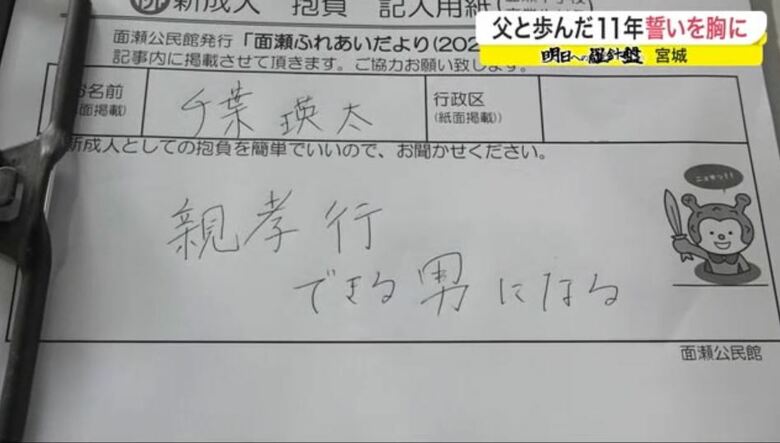 新成人 抱負 記入用紙
父と歩んだ11年誓いを胸に
明日への羅針盤 宮城
面瀬公民館発行「面瀬ふれあいだより(202
記事内に掲載させて頂きます。ご協力お願い致します。
お名前
面掲載)
千葉 瑛太
行政区
(紙面掲載))
新成人としての抱負を簡単でいいので、お聞かせください。
親孝行
できる男になる
面瀬公民館